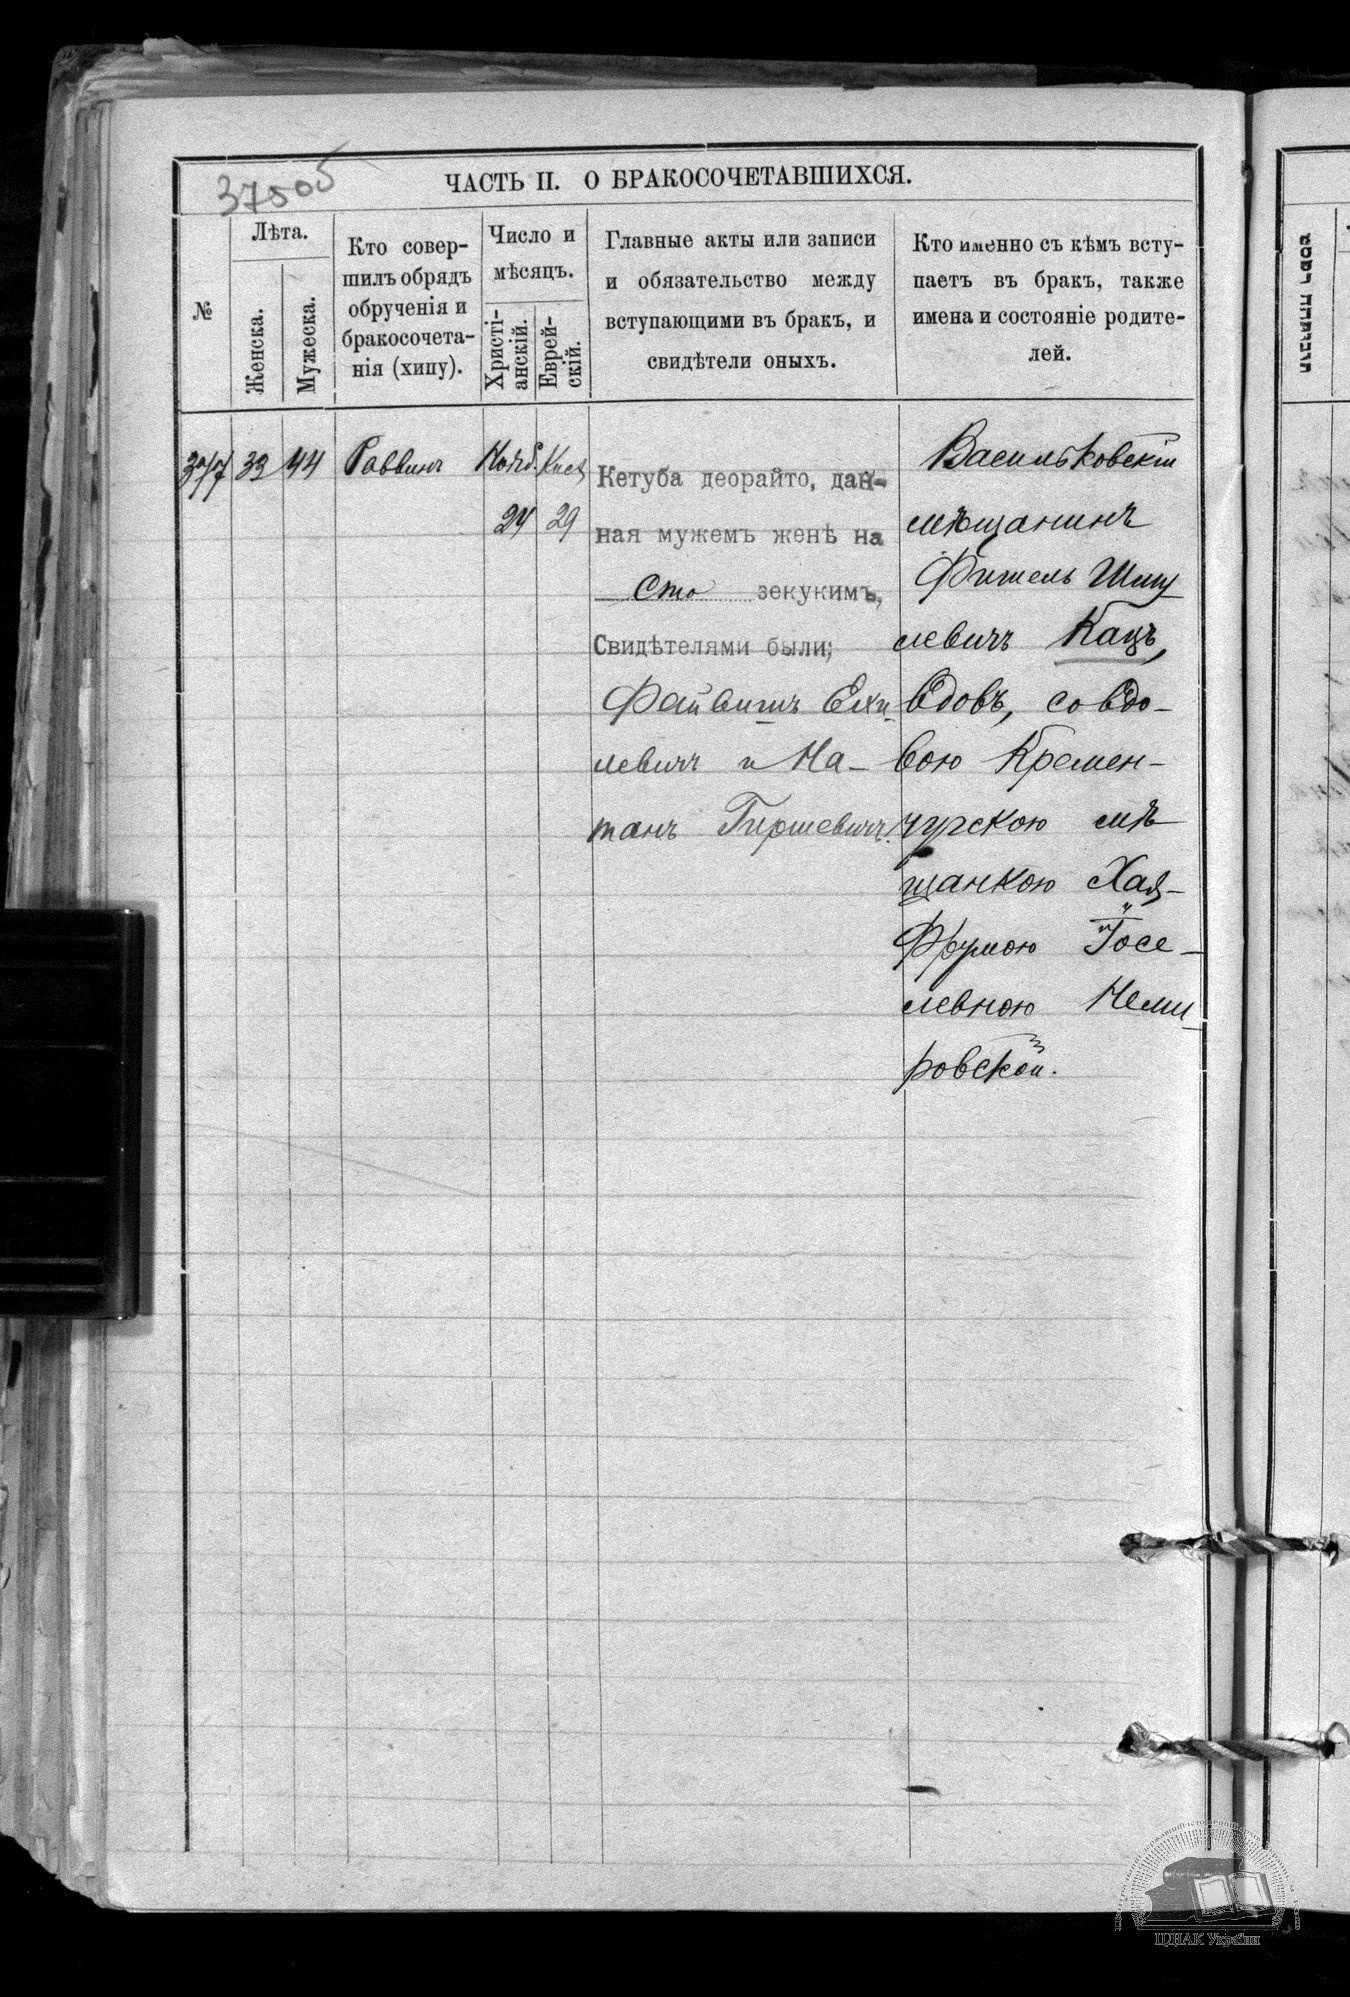 37505
ЧАСТЬ II. О БРАКОСОЧЕТАВШИХСЯ.
№
Лѣта.
Женска.
Мужеска.
Кто совер-
шилъ обрядъ
обрученія и
бракосочета-
нія (хипу).
Число и
мѣсяцъ.
Христі-
анскій.
Еврей-
скій.
Главные акты или записи
и обязательство между
вступающими въ бракъ, и
свидѣтели оныхъ.
Кто именно съ кѣмъ всту-
паетъ въ бракъ, также
имена и состояніе родите-
лей.
377
33
44
Раввинъ
Нояб.
24
Кисл
29
Кетуба деорайто, дан-
ная мужемъ женѣ на
сто зекукимъ,
Свидѣтелями были;
Файвишъ Ехи-
левичъ и На-
танъ Гиршевичъ.
Васильковскій
мѣщанинъ
Фишель Шму
левичъ Кацъ,
вдовъ, со вдо-
вою Кремен-
чугскою мѣ
щанкою Хая-
Фрумою Іосе-
левною Неми-
ровской.
ЦНАК України